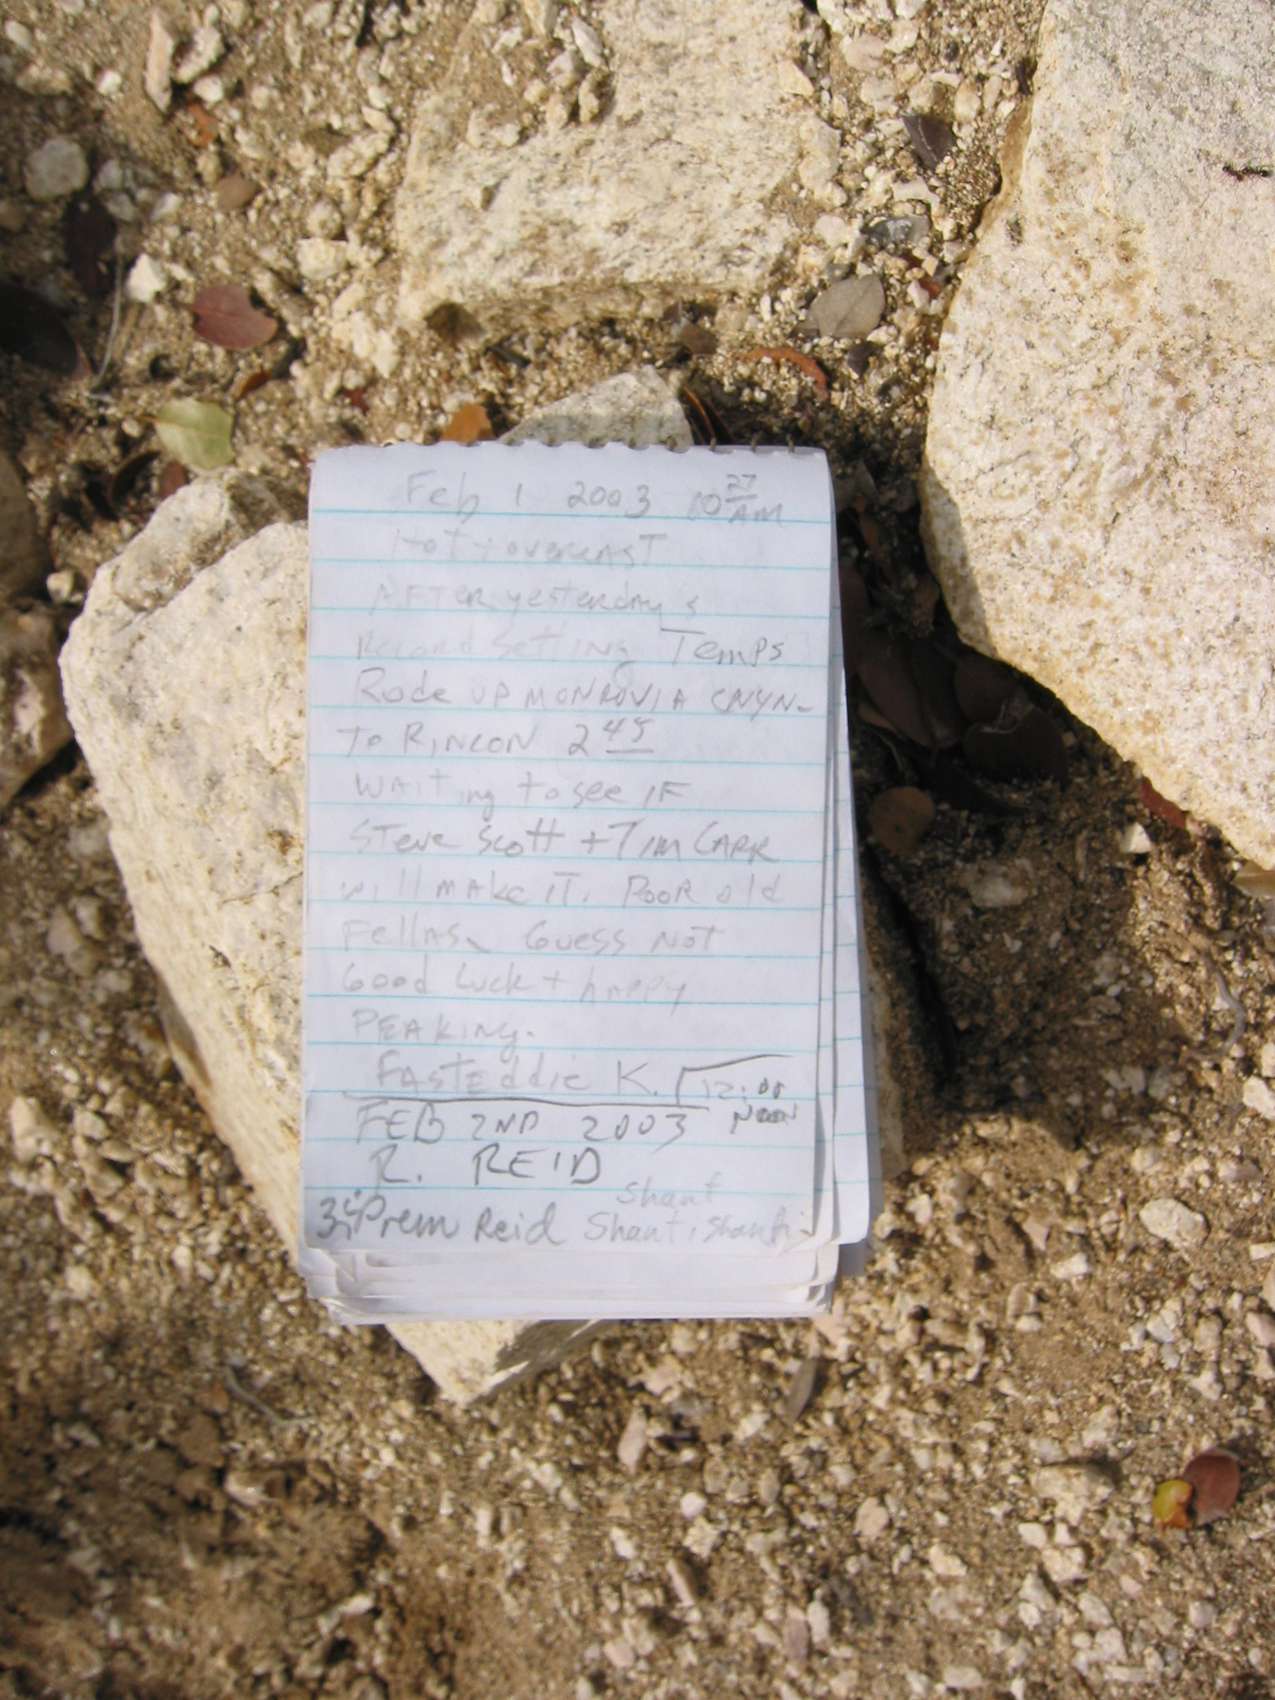 Feb 1 2003 10 27 AM
Hot + overcast
AFTER yesterday's
Record Setting Temps
Rode UP MONROVIA CNYN.
To RINCON 2 45
WAITing to see IF
Steve Scott + TIM CARR
will make IT. Poor old
Fellas. Guess Not
Good Luck + happy
PEAKINg.
FASTEddie K. 12:00
FEB 2ND 2003 NOON
R. REID
Prem Reid Shanti Shanti Shanti